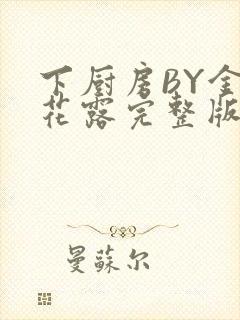 下厨房BY金
花露完整版
曼蘇尔